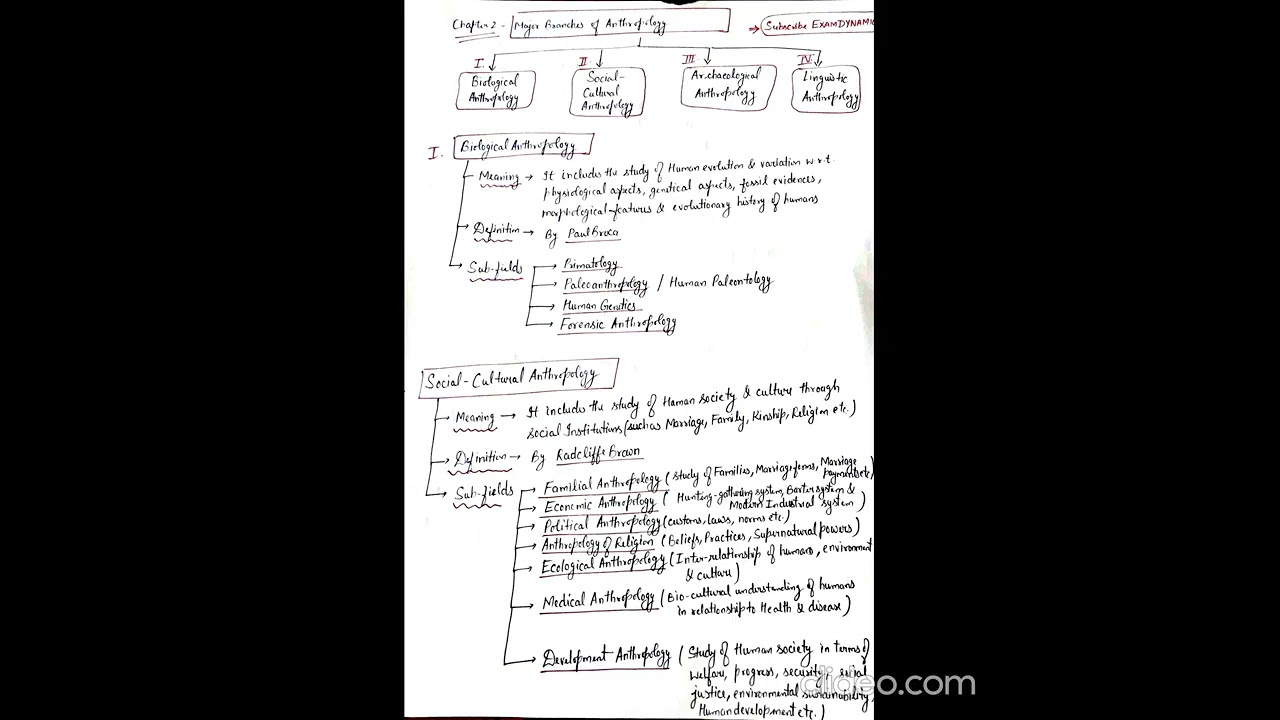 Chapter 2 - Major Branches of Anthropology
→ Subscribe EXAMDYNAMIC
I. II III IV
Biological Anthropology
Social-Cultural Anthropology
Archaeological Anthropology
Linguistic Anthropology
I. Biological Anthropology
Meaning → It includes the study of Human evolution & variation w.r.t.
physiological aspects, genetical aspects, fossil evidences,
morphological-features & evolutionary history of humans
Definition → By Paul Broca
Sub-fields → Primatology
→ Paleoanthropology / Human Paleontology
→ Human Genitics
→ Forensic Anthropology
Social-Cultural Anthropology
Meaning → It includes the study of Human society & culture through
social Institutions (such as Marriage, Family, Kinship, Religion etc.)
Definition → By Radcliffe Brown
Sub-fields → Familial Anthropology (Study of Families, Marriage forms, Marriage
payments etc)
→ Economic Anthropology (Hunting-gathering system, Barter system &
Modern Industrial system)
→ Political Anthropology (customs, laws, norms etc.)
→ Anthropology of Religion (Beliefs, Practices, Supernatural powers)
→ Ecological Anthropology (Inter-relationship of humans, environment
& culture)
→ Medical Anthropology (Bio-cultural understanding of humans
in relationship to Health & disease)
→ Development Anthropology (Study of Human society in terms of
welfare, progress, security, social
justice, environmental sustainability,
Human development etc.)
clideo.com